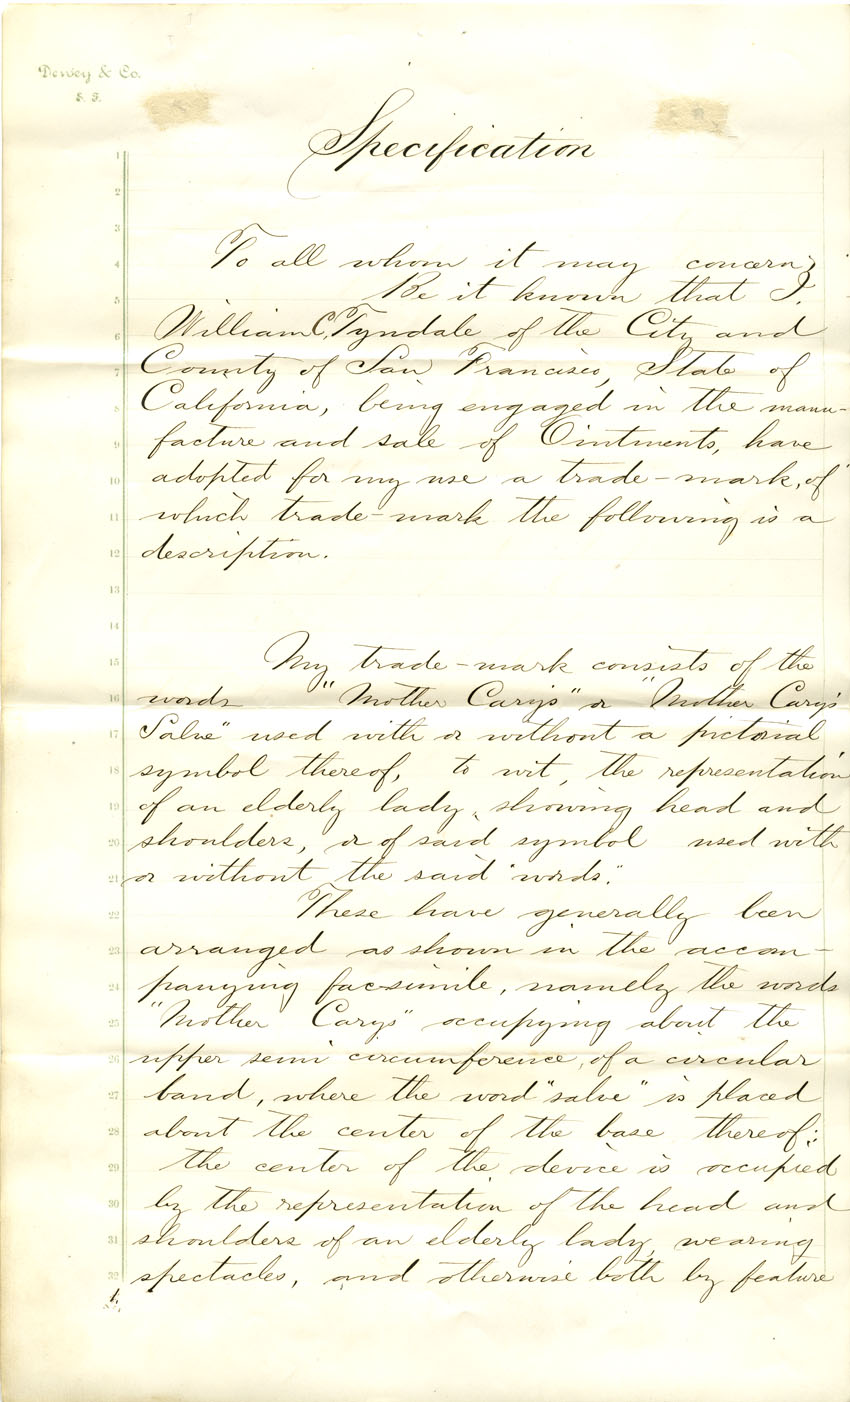 Dewey & Co.
S. F.
Specification
1
2
3
4 To all whom it may concern;
5 Be it known that I,
6 William C. Tyndale of the City and
7 County of San Francisco, State of
8 California, being engaged in the manu-
9 facture and sale of Ointments, have
10 adopted for my use a trade-mark, of
11 which trade-mark the following is a
12 description.
13
14
15 My trade-mark consists of the
16 words "Mother Cary's" or "Mother Cary's
17 Salve" used with or without a pictorial
18 symbol thereof, to wit, the representation
19 of an elderly lady, showing head and
20 shoulders, or of said symbol used with
21 or without the said "words."
22 These have generally been
23 arranged as shown in the accom-
24 panying fac-simile, namely the words
25 "Mother Cary's" occupying about the
26 upper semi circumference, of a circular
27 band, where the word "salve" is placed
28 about the center of the base thereof;
29 the center of the device is occupied
30 by the representation of the head and
31 shoulders of an elderly lady, wearing
32 spectacles, and otherwise both by feature
1.